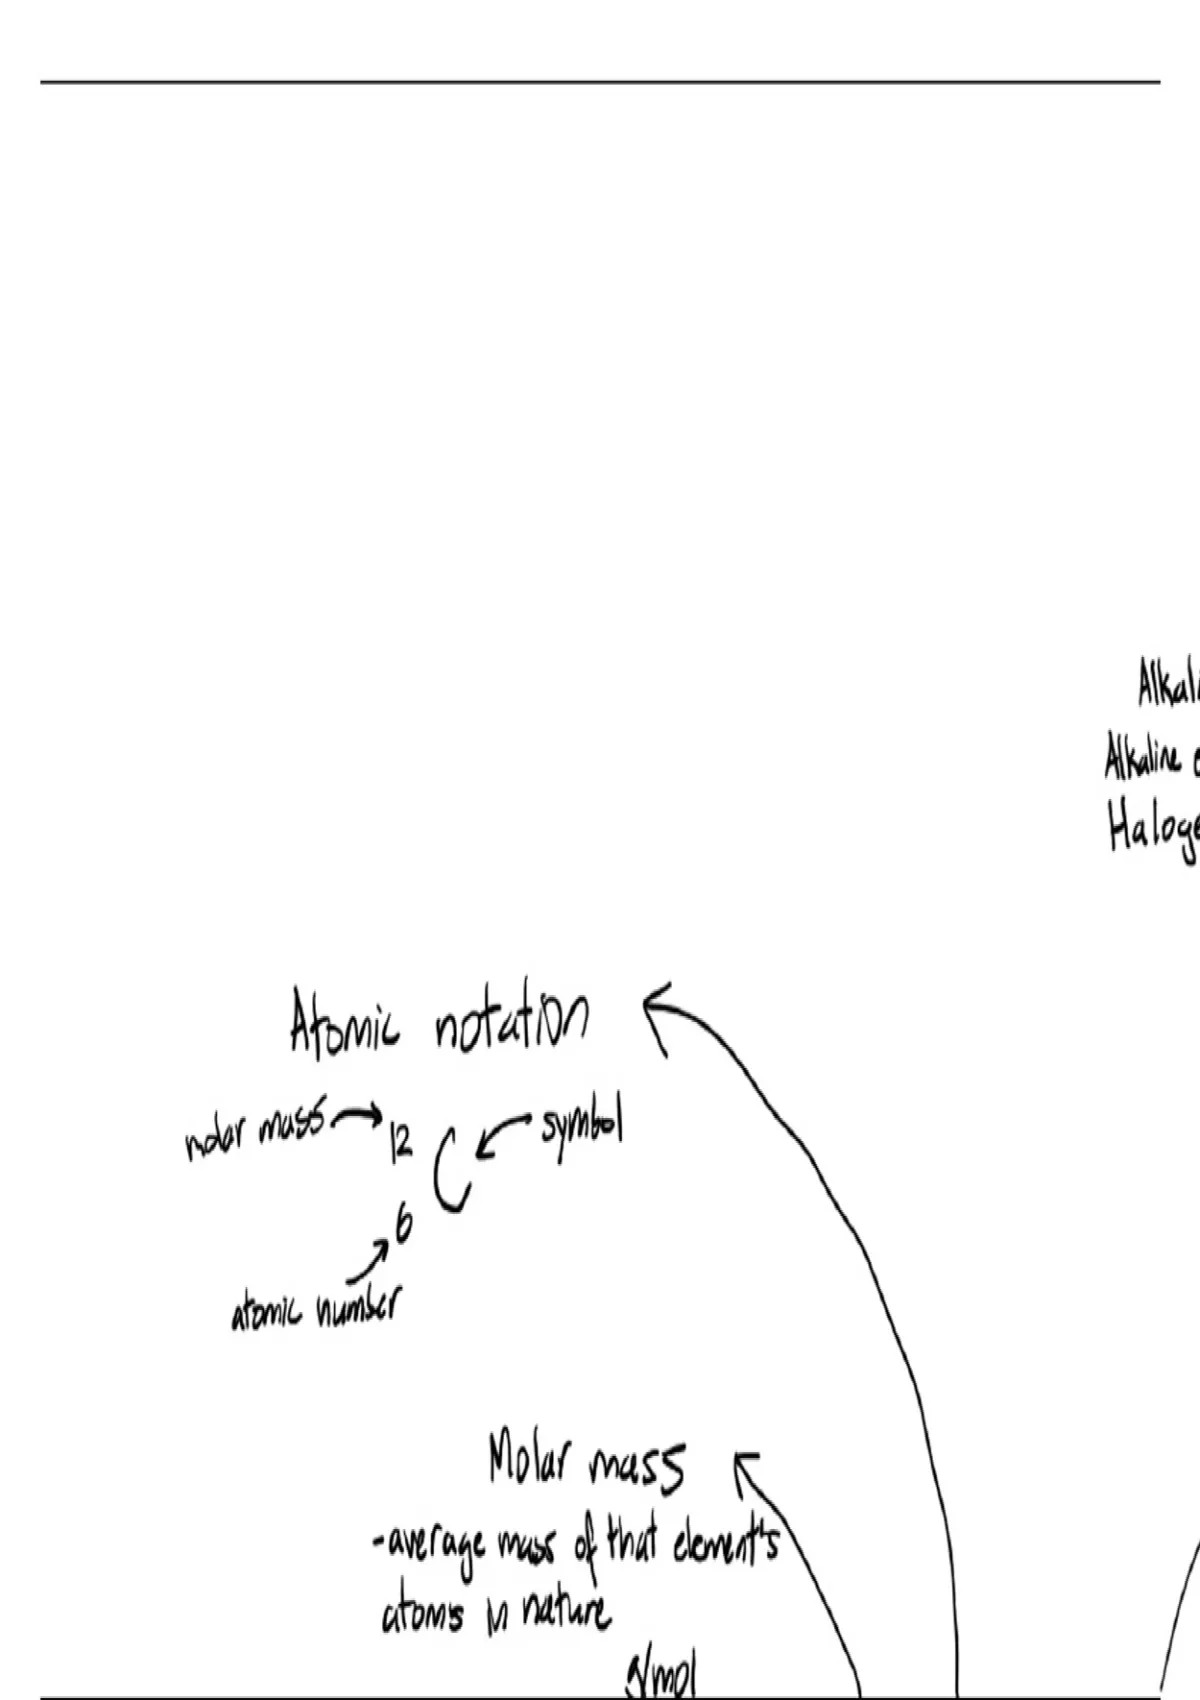 Alkali
Alkaline e
Haloge
Atomic notation
molar mass 12 C symbol
6
atomic number
Molar mass
-average mass of that element's
atoms in nature
g/mol